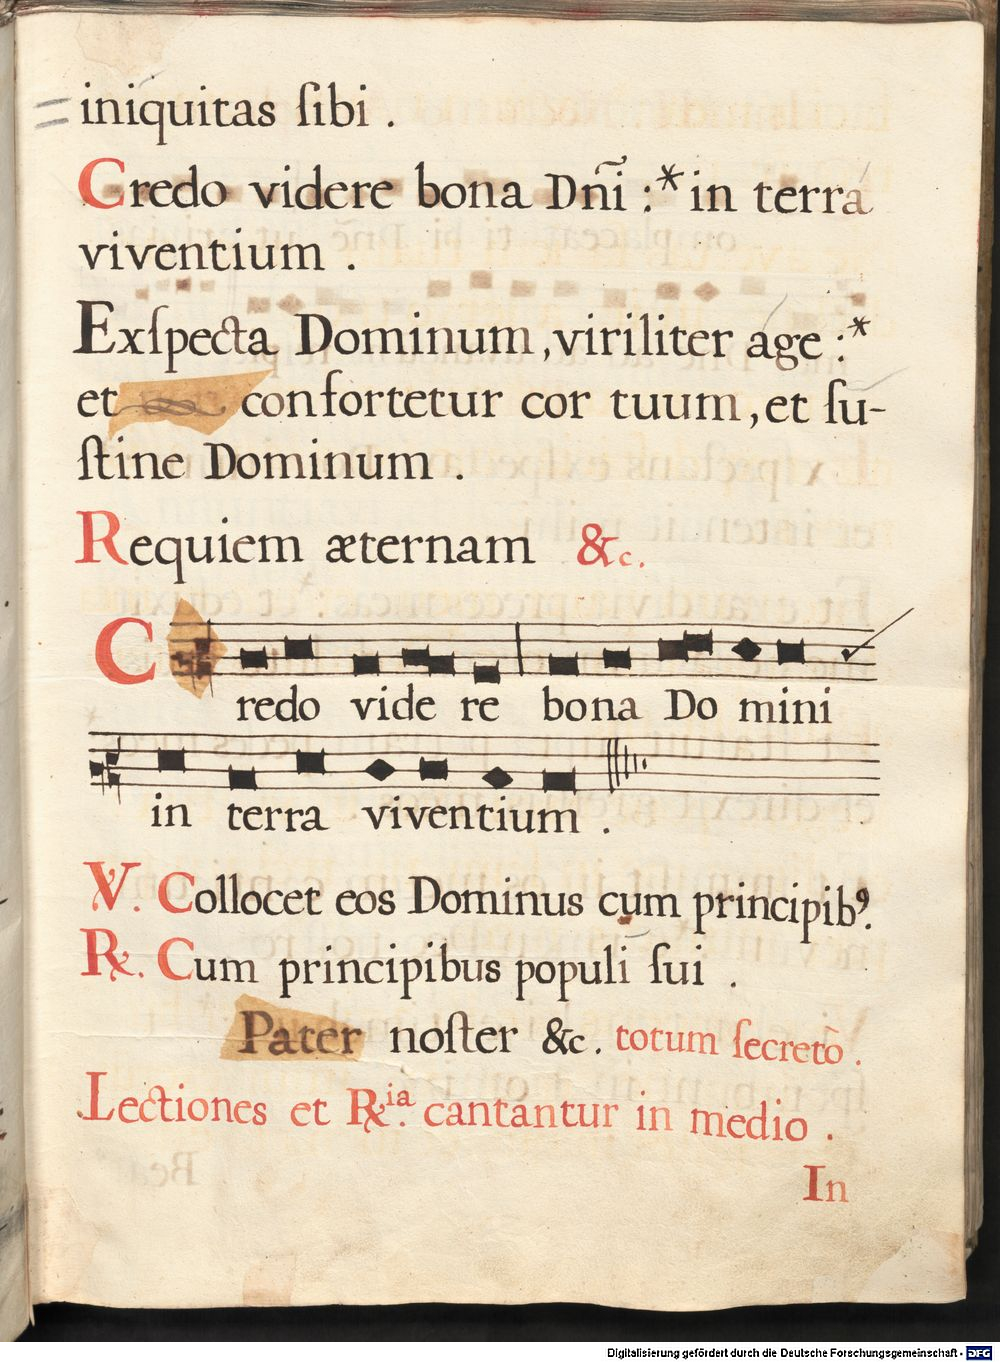 iniquitas ſibi .
Credo videre bona Dn̄i :* in terra
viventium .
Exſpecta Dominum, viriliter age :*
et confortetur cor tuum, et ſu-
ſtine Dominum .
Requiem æternam &c.
Credo vide re bona Do mini
in terra viventium .
V. Collocet eos Dominus cum principibꝰ.
℞. Cum principibus populi ſui .
Pater noſter &c. totum ſecretō .
Lectiones et ℞ia. cantantur in medio .
In
Digitalisierung gefördert durch die Deutsche Forschungsgemeinschaft - DFG